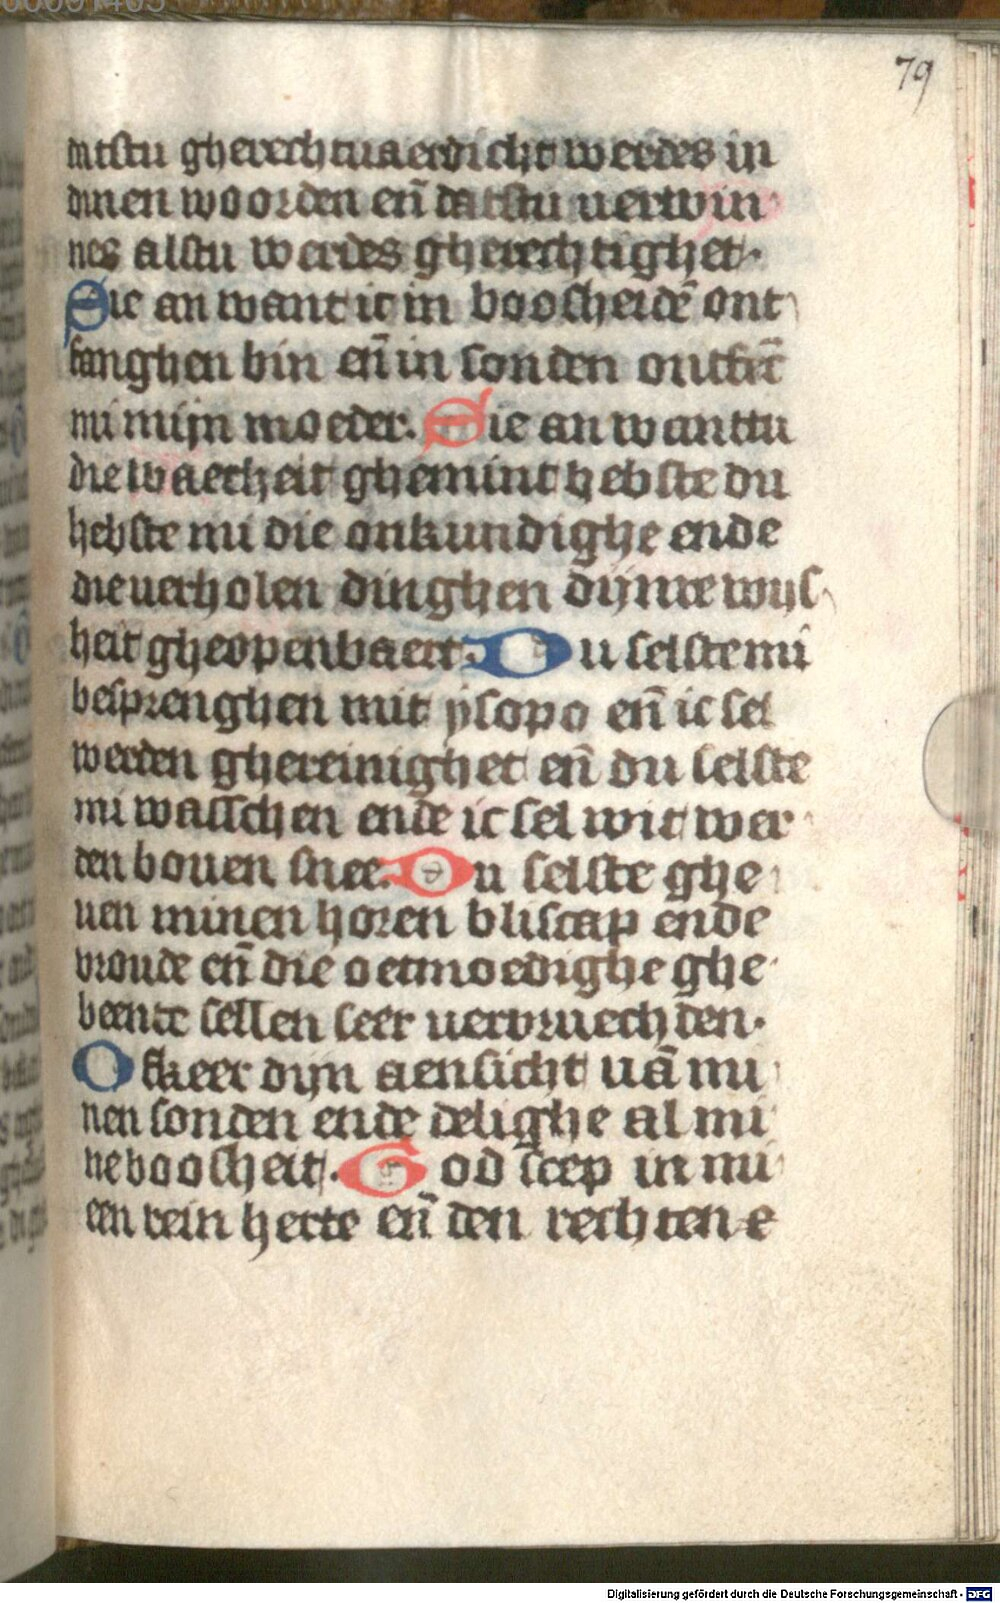 79
datstu gherechtuaerdicht werdes in
dinen woorden en̄ datstu uerwin
nes alstu werdes gherechtighet.
Sie an want ic in boosheidē ont
fanghen bin en̄ in sonden ontfīc
mi mijn moeder. Sie an wanttu
die waerheit ghemint hebste du
hebste mi die onkundighe ende
die uerholen dinghen dijnre wijs
heit gheopenbaert. Du selste mi
besprenghen mit ysopo en̄ ic sel
werden ghereinighet en̄ du selste
mi wasschen ende ic sel wit wer
den bouen snee. Du selste ghe
uen minen horen bliscap ende
vroude en̄ die oetmoedighe ghe
beente sellen seer uervruechden.
Ofkeer dijn aensicht uā mi
nen sonden ende delighe al mi
ne boosheit. God scep in mi
een rein herte en̄ den rechten e
Digitalisierung gefördert durch die Deutsche Forschungsgemeinschaft - DFG